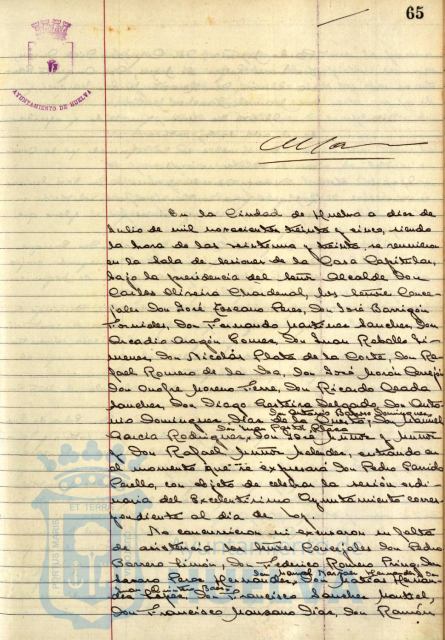 65
AYUNTAMIENTO DE HUELVA
En la Ciudad de Huelva a diez de
Julio de mil novecientos treinta y cinco, siendo
la hora de las veintiuna y treinta, se reunieron
en la Sala de sesiones de la Casa Capitular,
bajo la presidencia del Señor Alcalde Don
Carlos Oliveira Chardenal, los Señores Conce-
jales Don José Toscano Perez, Don José Barrigón
Fornieles, Don Fernando Martinez Sanchez, Don
Arcadio Aragón Gomez, Don Juan Rebollo Ji-
menez, Don Nicolás Plata de la Corte, Don Ra-
fael Romero de la Don José Morón
Don Onofre Moreno Don Ricardo
Sanchez, Don Diego Delgado, Don Anto-
Don Antonio Dominguez
nio Dominguez Diaz de la Don Manuel
Don Juan
Garcia Rodriguez, Don José Muñoz y Muñoz
y Don Rafael Muñoz entrando en
el momento que se expresará Don Pedro Garrido
Perelló, con objeto de celebrar la sesión ordi-
naria del Excelentísimo Ayuntamiento corres-
pondiente al día de hoy.
No concurrieron ni excusaron su falta
de asistencia los Señores Concejales Don Pedro
Borrero Limón, Don Federico Romero Don
Don Manuel
Perez Hernandez, Don Matias Hernan-
dez Don Francisco Sanchez
Don Francisco Manzano Diaz, Don Ramón